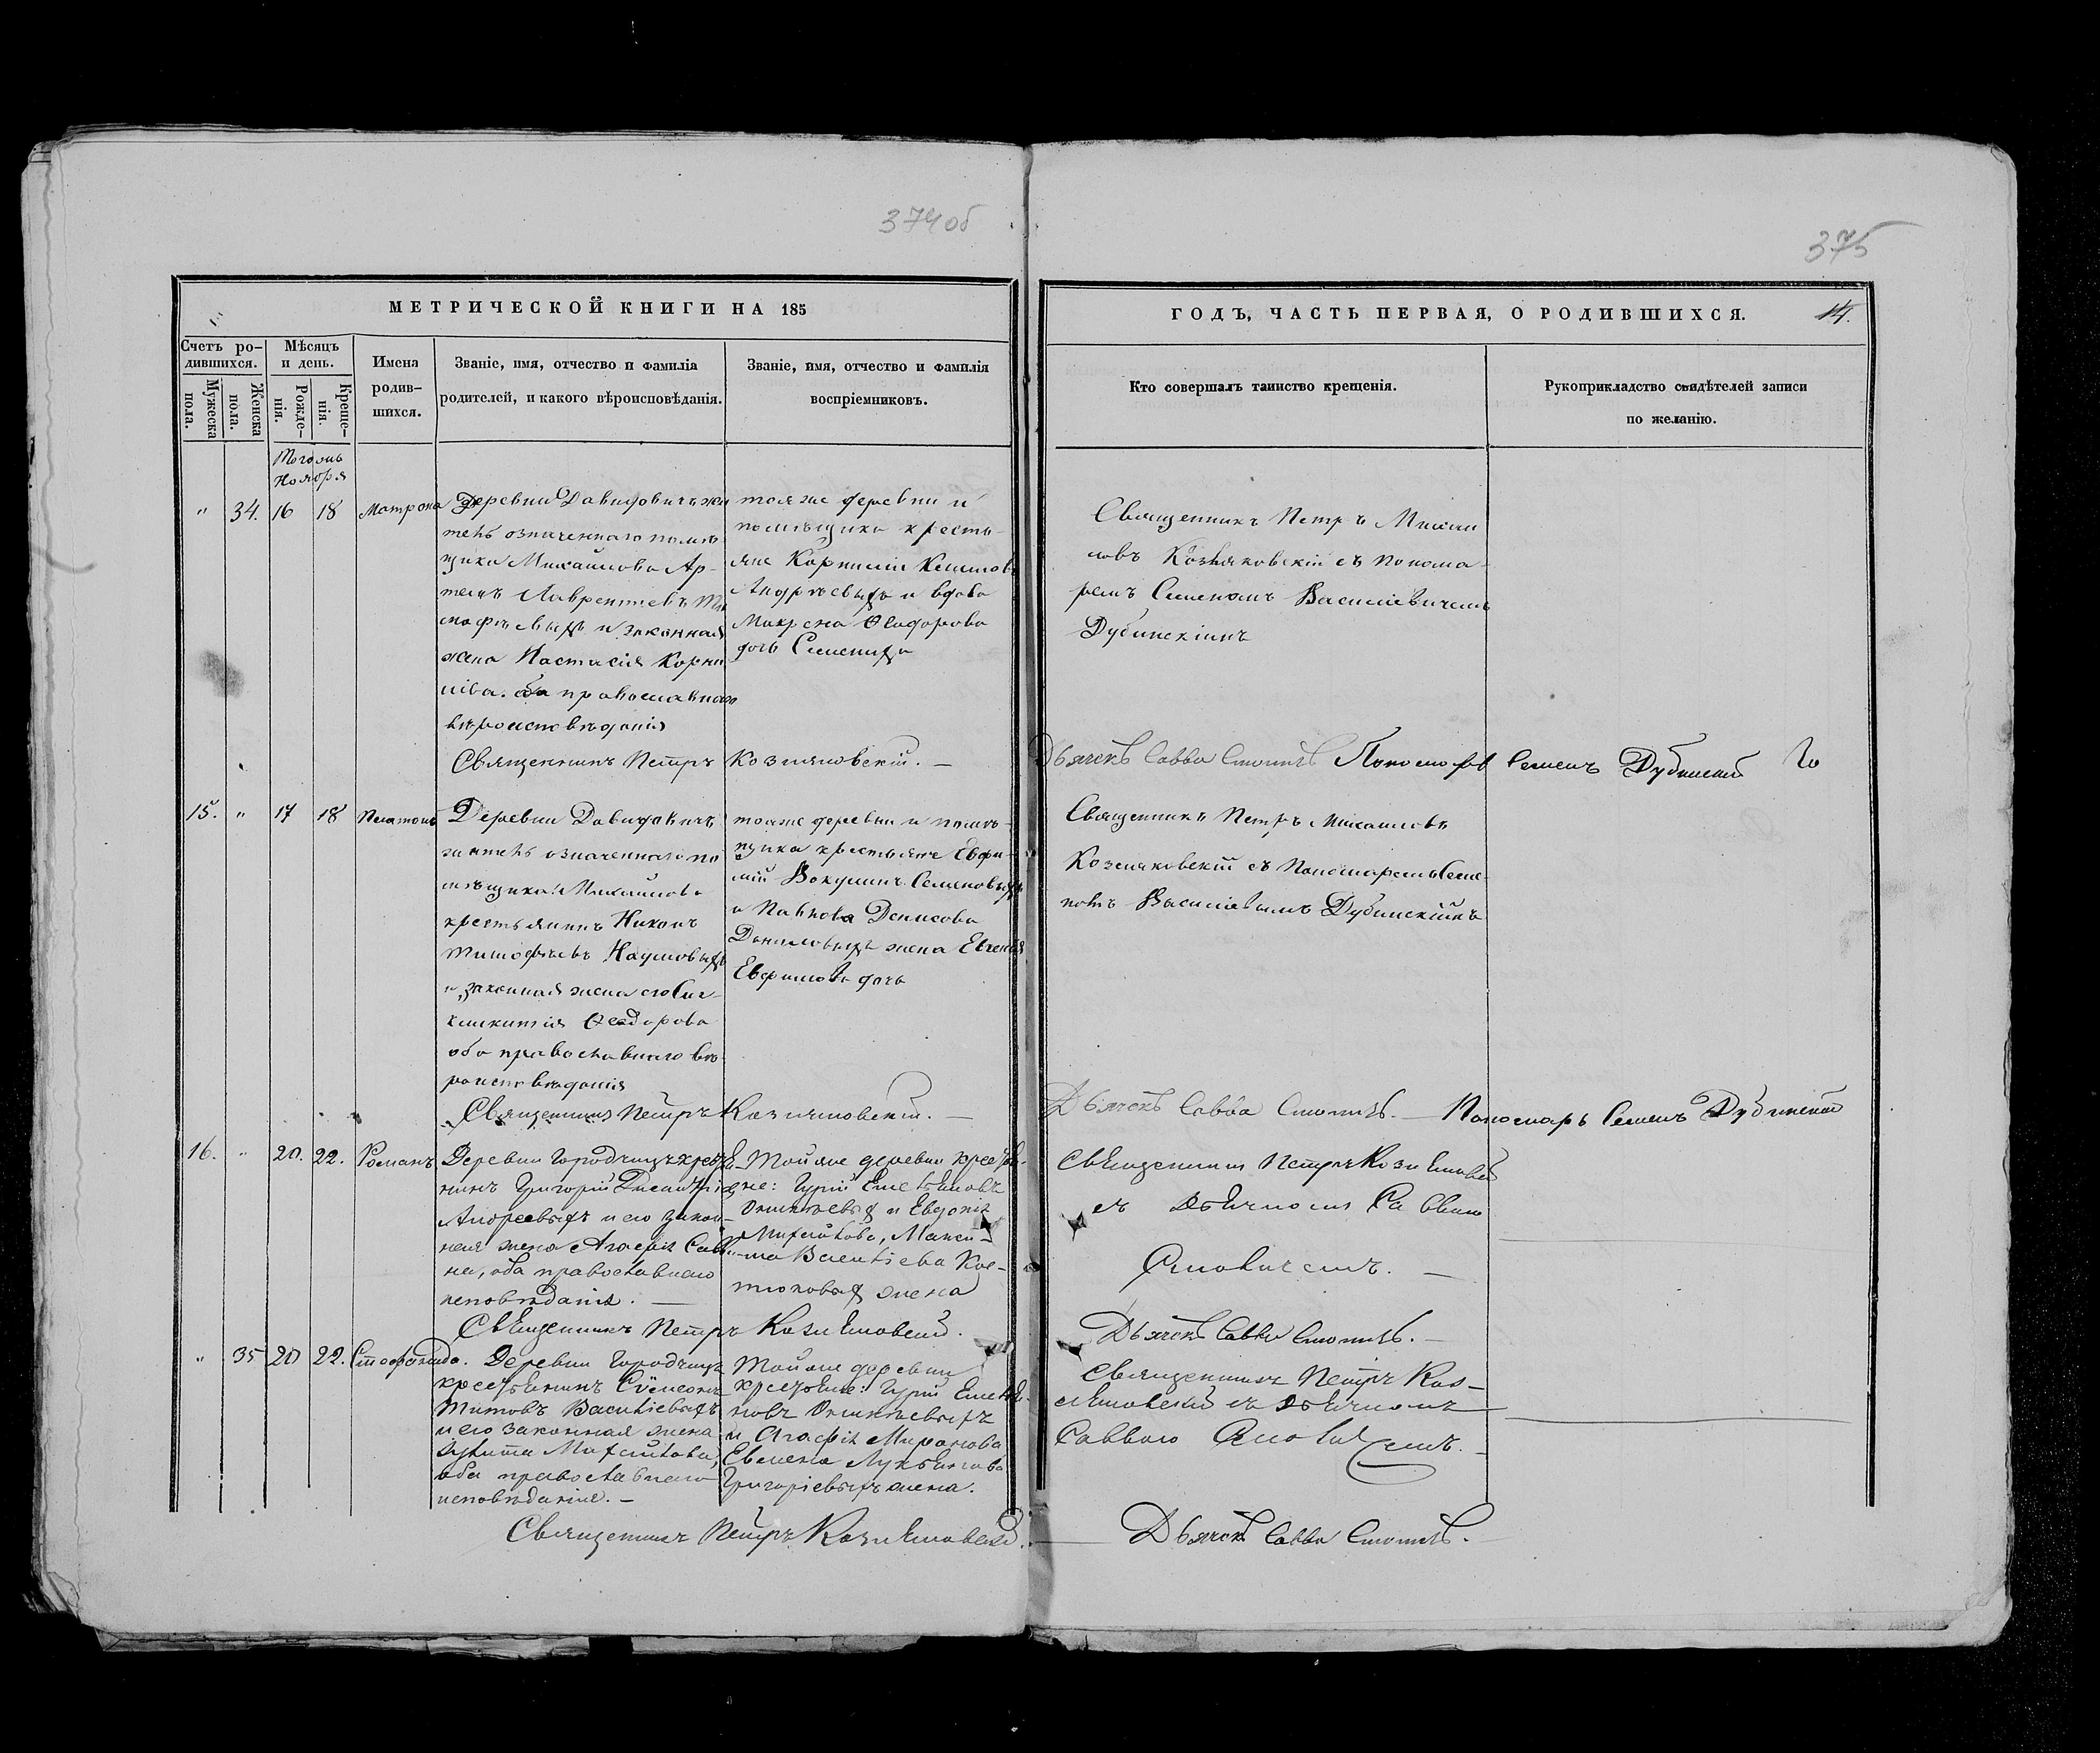 374об
375
МЕТРИЧЕСКОЙ КНИГИ НА 185
ГОДЪ, ЧАСТЬ ПЕРВАЯ, О РОДИВШИХСЯ.
14.
Счетъ ро-
дившихся.
Мужеска
пола.
Женска
пола.
Мѣсяцъ
и день.
Рожде-
нія.
Креще-
нія.
Имена
родив-
шихся.
Званіе, имя, отчество и фамилія
родителей, и какого вѣроисповѣданія.
Званіе, имя, отчество и фамилія
воспріемниковъ.
Кто совершалъ таинство крещенія.
Рукоприкладство свидѣтелей записи
по желанію.
Ноября
" 34. 16 18 Матрона
Деревни Давидовичъ жи
тель означеннаго помѣ
щика Михайлова Ар-
темъ Лаврентіевъ
и законная
жена Настасія Корни
ліева. оба православнаго
вѣроисповѣданія
тояже деревни и
помѣщика кресть-
яне Корнилій
Андрѣевыхъ и вдова
Макрена Ѳеодорова
дочь
Священникъ Петръ Михаи
ловъ Козляковскій съ понома-
ремъ Семеномъ Василіевичемъ
Дубинскимъ
Священникъ Петръ Козляковскій. —
Дьячекъ Савва Пономарь Семенъ Дубинскій
15. " 17 18 Платонъ
Деревни Давидовичъ
житель означеннаго по
мѣщика Михайлова
крестьянинъ Никонъ
Тимофѣевъ Наумовыхъ
и законная жена его Син-
клитикія Ѳеодорова
оба православнаго вѣ-
роисповѣданія
тояже деревни и помѣ-
щика крестьяне Евфи-
мій Семеновыхъ
и Павлова Денисова
Даниловыхъ жена Евгенія
Евфимова дочь
Священникъ Петръ Михаиловъ
Козляковскій съ Пономаремъ Семе-
номъ Василіевымъ Дубинскимъ
Священникъ Петръ Козляковскій. —
Дьячекъ Савва — Пономарь Семенъ Дубинскій
16. " 20. 22. Романъ
Деревни Городчицъ крестья
нинъ Григорій Дмитрі
Андреевыхъ и его закон-
ная жена Агафія Савви-
на, оба православнаго
исповѣданія. —
Тойже деревни крестья-
не: Гурій Емельяновъ
и Евдокія
Михайлова, Макси-
ма Василіева Кос-
тюковыхъ жена
Священникъ Петръ Козляковскій
съ дьячкомъ Саввою
Священникъ Петръ Козляковскій.
Дьячекъ Савва
" 35 20 22. Стефанида.
Деревни Городчицъ
крестьянинъ Сѵмеонъ
Титовъ Василіевыхъ
и его законная жена
Михайлова,
оба православнаго
исповѣданія. —
Тойже деревни
крестьяне: Гурій Емелья-
новъ
и Агафія Миронова
Евмена Лукьянова
Григоріевыхъ жена.
Священникъ Петръ Коз-
ляковскій съ дьячкомъ
Саввою
Священникъ Петръ Козляковскій.
Дьячекъ Савва